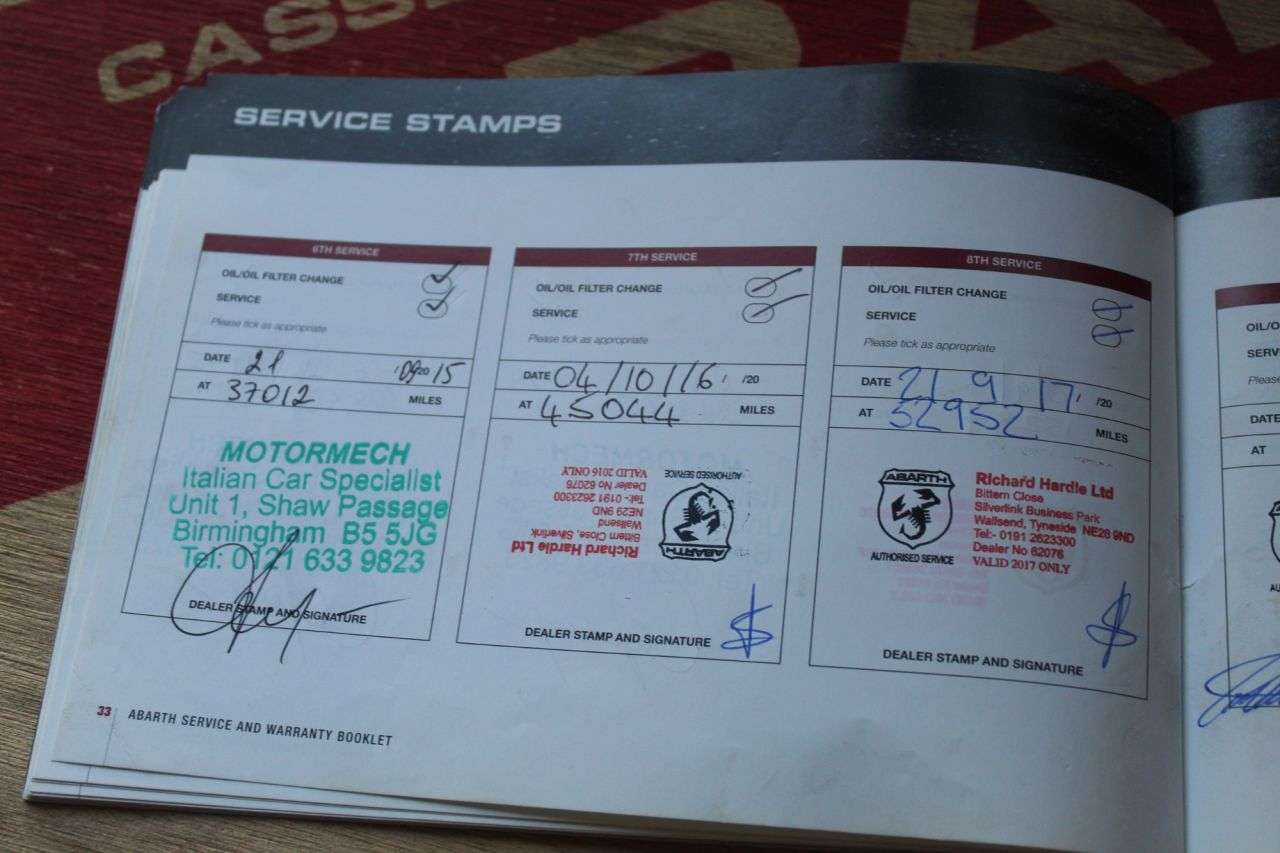 CASSE
SERVICE STAMPS
6TH SERVICE
OIL/OIL FILTER CHANGE
SERVICE
Please tick as appropriate
DATE 21 '09 20 15
AT 37012 MILES
MOTORMECH
Italian Car Specialist
Unit 1, Shaw Passage
Birmingham B5 5JG
Tel: 0121 633 9823
DEALER STAMP AND SIGNATURE
7TH SERVICE
OIL/OIL FILTER CHANGE
SERVICE
Please tick as appropriate
DATE 04/10/16 /20
AT 45044 MILES
ABARTH
AUTHORISED SERVICE
Richard Hardie Ltd
Bittern Close, Silverlink
Wallsend
NE29 9ND
Tel:- 0191 2623300
Dealer No 62076
VALID 2016 ONLY
DEALER STAMP AND SIGNATURE
8TH SERVICE
OIL/OIL FILTER CHANGE
SERVICE
Please tick as appropriate
DATE 21 9 17 /20
AT 52952 MILES
ABARTH
AUTHORISED SERVICE
Richard Hardie Ltd
Bittern Close
Silverlink Business Park
Wallsend, Tyneside NE28 9ND
Tel:- 0191 2623300
Dealer No 62076
VALID 2017 ONLY
DEALER STAMP AND SIGNATURE
OIL/O
SERV
Please
DATE
AT
33 ABARTH SERVICE AND WARRANTY BOOKLET